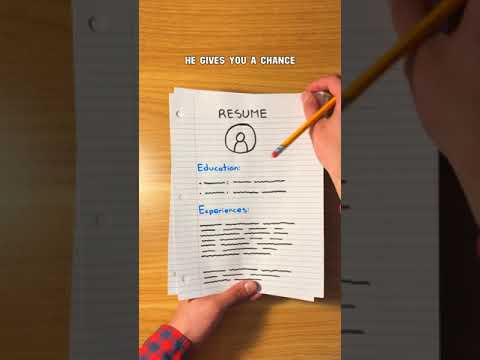 HE GIVES YOU A CHANCE
RESUME
Education:
Experiences: